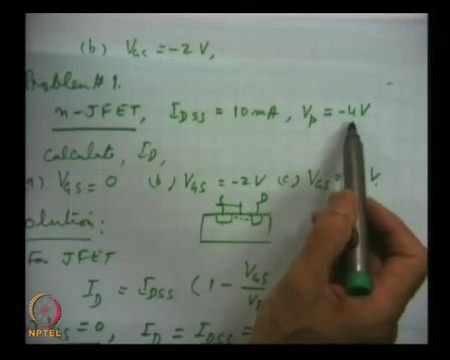 (b) VGS = -2 V,
Problem # 1.
n-JFET, IDSS = 10 mA, Vp = -4V
Calculate, ID,
a) VGS = 0 (b) VGS = -2V (c) VGS = V.
S D
Solution:
For JFET
ID = IDSS (1 - VGS/VP
GS = 0, ID = IDSS =
NPTEL